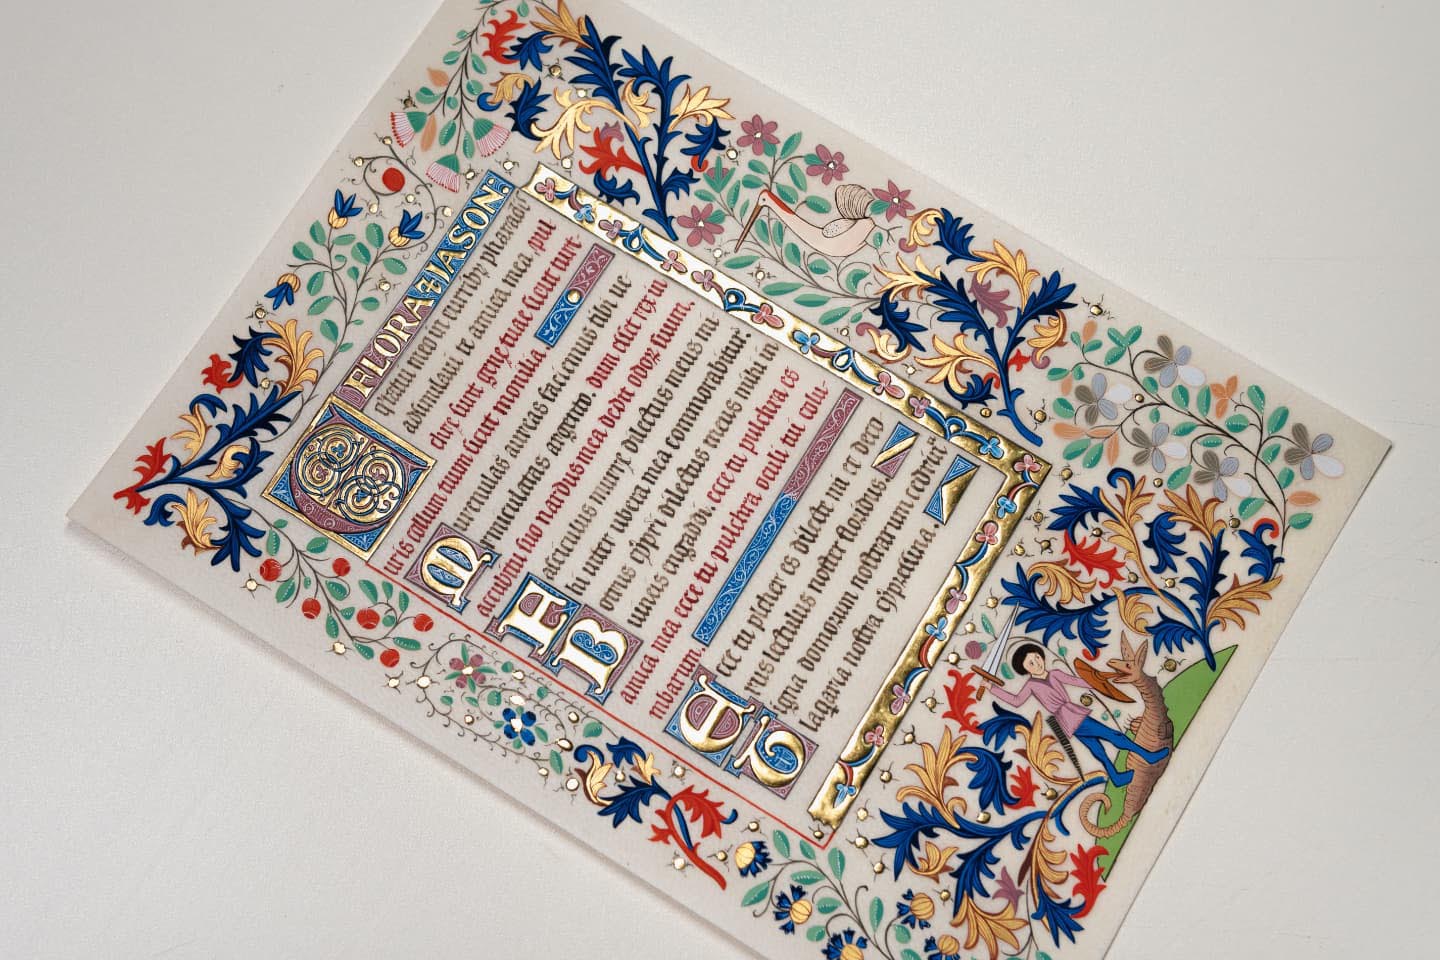 FLORA 7 IASON:
Equitatui meo in curribꝫ pharaon
assimilaui te amica mea. pul
chrę sunt genę tuae sicut turt-
uris collum tuum sicut monilia
Murenulas aureas faciemus tibi ue
rmiculatas argento. dum esset rex in
accubitu suo nardus mea dedit odorem suum
Fasciculus mirrę dilectus meus mi
hi inter ubera mea commorabitur.
Botrus cypri dilectus meus mihi in
uineis engaddi. ecce tu pulchra es
amica mea ecce tu pulchra oculi tui colu-
mbarum
Ecce tu pulcher es dilecte mi et deco
rus lectulus noster floridus
Tigna domorum nostrarum cedrina
laqęaria nostra cypressina.